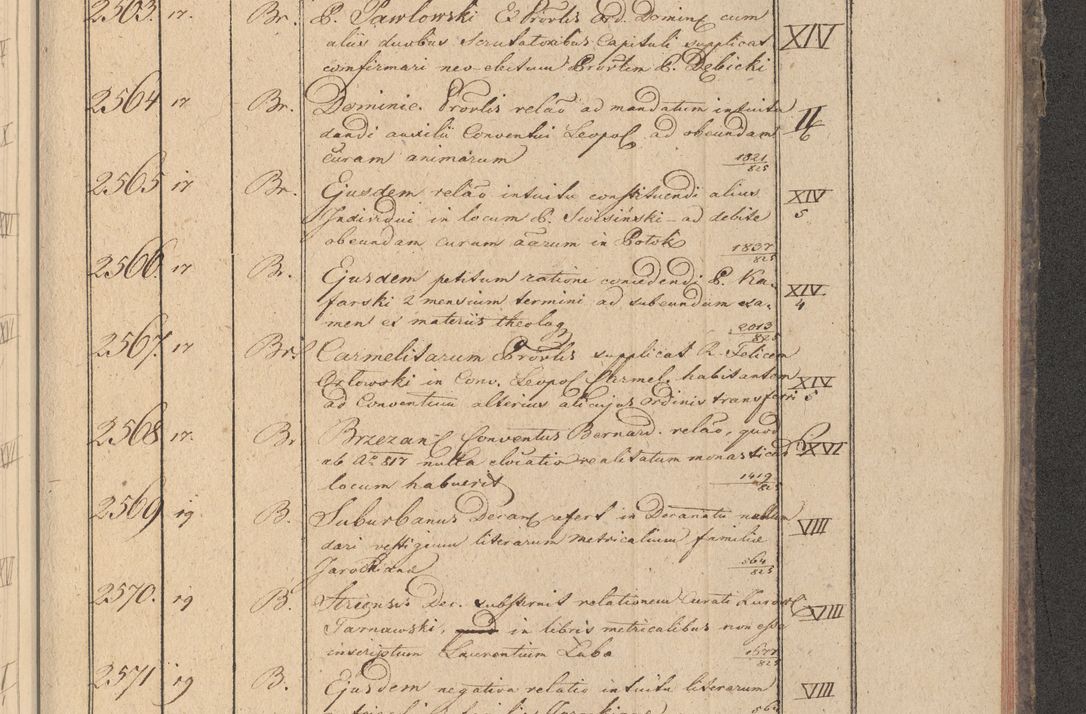 2563. 17. Br. P. Pawlowski ExProvlis Ord. Dominc cum
aliis duobus Scrutatoribus Capituli supplicat XIV
confirmari neo-electum Provlem P. Dębicki
2564 17 Br. Dominic. Provlis relaõ ad mandatum intuitu
dandi auxilii Conventui Leopol ad obeundam II 6
curam animarum 1821/825
2565 17 Br. Ejusdem relaõ intuitu constituendi alius
Individui in locum P. Swisiński ad debite XIV 5
obeundam curam aarum in Potok 1837/825
2566. 17 Br. Ejusdem petitum ratione concedendi P. Ka-
farski 2 mensium termini ad subeundum exa- XIV 4
men ex materiis theolog 2013/825
2567. 17 Br. Carmelitarum Provlis supplicat R. Felicem
Orlowski in Conv. Leopol Carmel. habitantem XIV 5
ad Conventum alterius alicujus ordinis transferri
2568 17. Br Brzezan Conventus Bernard. relaõ, quod
ab Aº 817 nulla elocatio realitatum monasticar XVI
locum habuerit 1419/825
2569 19. B. Suburbanus Decan refert in Decanatu nullum
dari vestigium literarum metricalium familiæ VIII
Jarockianæ 564/825
2570. 19 B. Striensis Dec. substernit relationem Curati
Tarnawski, in libris metricalibus non esse XVIII
inscriptum Laurentium Luba 1677/825
2571 19 B. Ejusdem negativa relatio intuitu literarum VIII